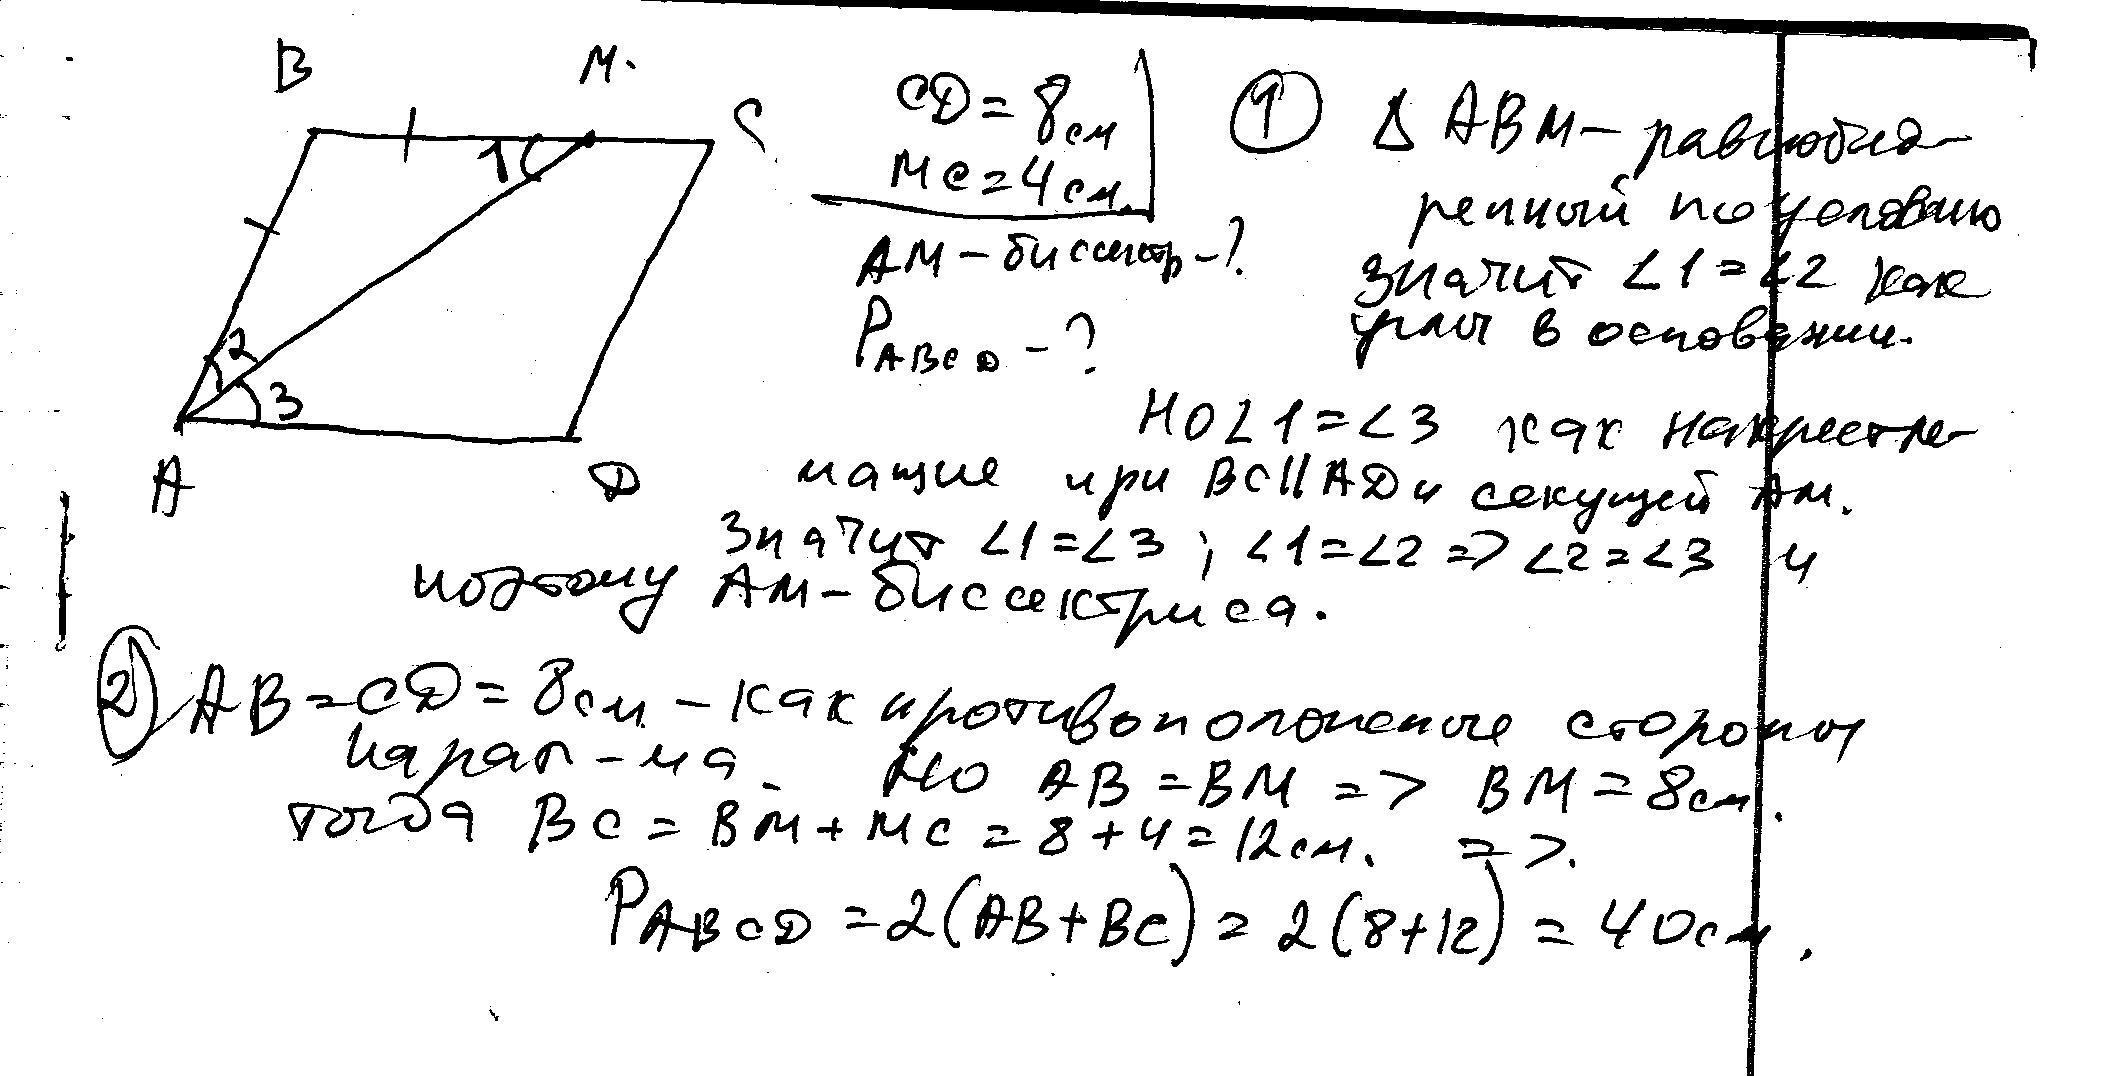 B M. C
1
2
3
A D
CD = 8 см
MC = 4 см.
AM – биссектр – ?
P ABCD – ?
① Δ ABM – равнобед-
ренный по условию
значит ∠1 = ∠2 как
углы в основании.
Но ∠1 = ∠3 как накрестле-
жащие при BC || AD и секущей AM.
Значит ∠1 = ∠3 ; ∠1 = ∠2 => ∠2 = ∠3 и
поэтому AM – биссектриса.
② AB = CD = 8 см – как противоположные стороны
парал-ма. Но AB = BM => BM = 8 см.
тогда BC = BM + MC = 8 + 4 = 12 см. =>.
P ABCD = 2 (AB + BC) = 2 (8 + 12) = 40 см.